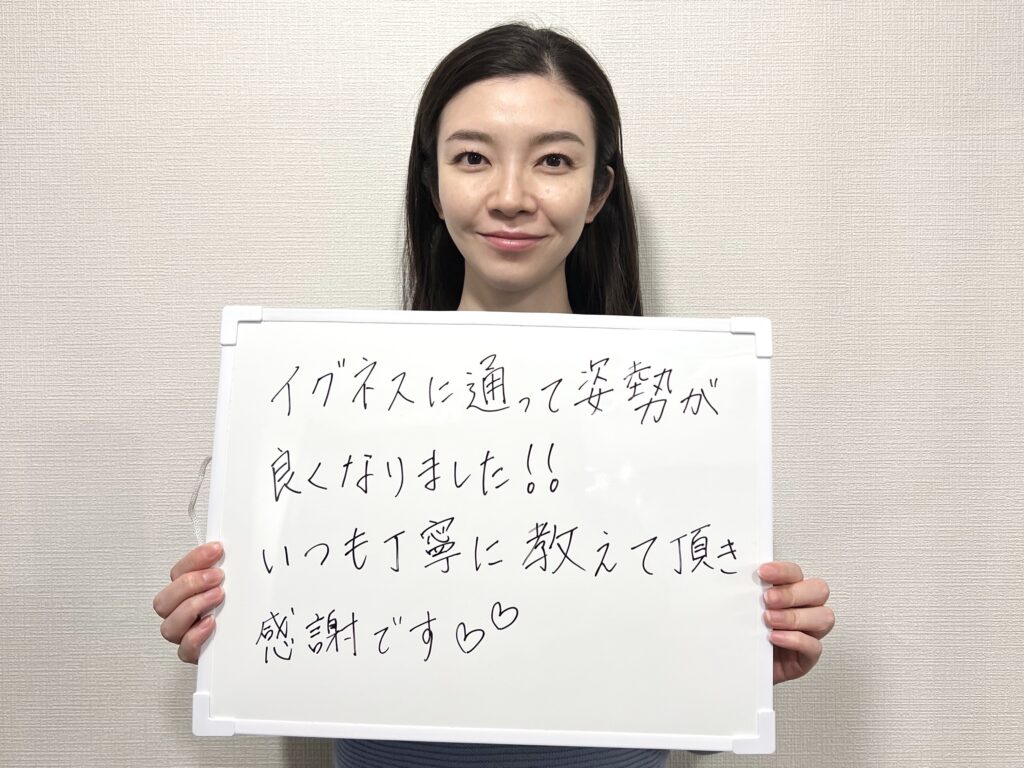 イグネスに通って姿勢が
良くなりました!!
いつも丁寧に教えて頂き
感謝です♡♡